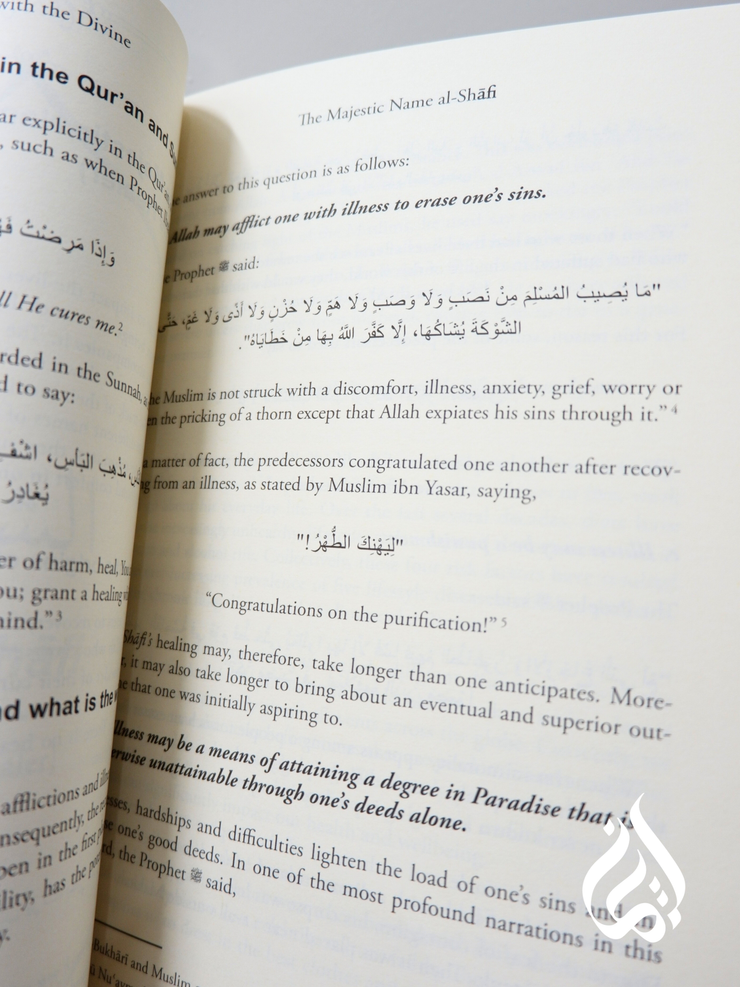 with the Divine
in the Qur'an and
explicitly in the Qur'an
, such as when Prophet
وَإِذَا مَرِضْتُ
He cures me."²
in the Sunnah,
to say:
مُذْهِبَ البَأْسِ، اشْفِ
يُغَادِرُ
of harm, heal,
grant a healing
³
what is the
afflictions and
in the first
has the
The Majestic Name al-Shāfi
answer to this question is as follows:
Allah may afflict one with illness to erase one's sins.
Prophet ﷺ said:
"مَا يُصِيبُ المُسْلِمَ مِنْ نَصَبٍ وَلَا وَصَبٍ وَلَا هَمٍّ وَلَا حُزْنٍ وَلَا أَذًى وَلَا غَمٍّ، حَتَّى
الشَّوْكَةَ يُشَاكُهَا، إِلَّا كَفَّرَ اللَّهُ بِهَا مِنْ خَطَايَاهُ".
Muslim is not struck with a discomfort, illness, anxiety, grief, worry or
the pricking of a thorn except that Allah expiates his sins through it." ⁴
a matter of fact, the predecessors congratulated one another after recov-
from an illness, as stated by Muslim ibn Yasar, saying,
"لِيَهْنِكَ الطُّهْرُ!"
"Congratulations on the purification!" ⁵
Shāfi's healing may, therefore, take longer than one anticipates. More-
it may also take longer to bring about an eventual and superior out-
that one was initially aspiring to.
Illness may be a means of attaining a degree in Paradise that is
unattainable through one's deeds alone.
hardships and difficulties lighten the load of one's sins and
one's good deeds. In one of the most profound narrations in this
the Prophet ﷺ said,
Bukhārī and Muslim
Nu'aym